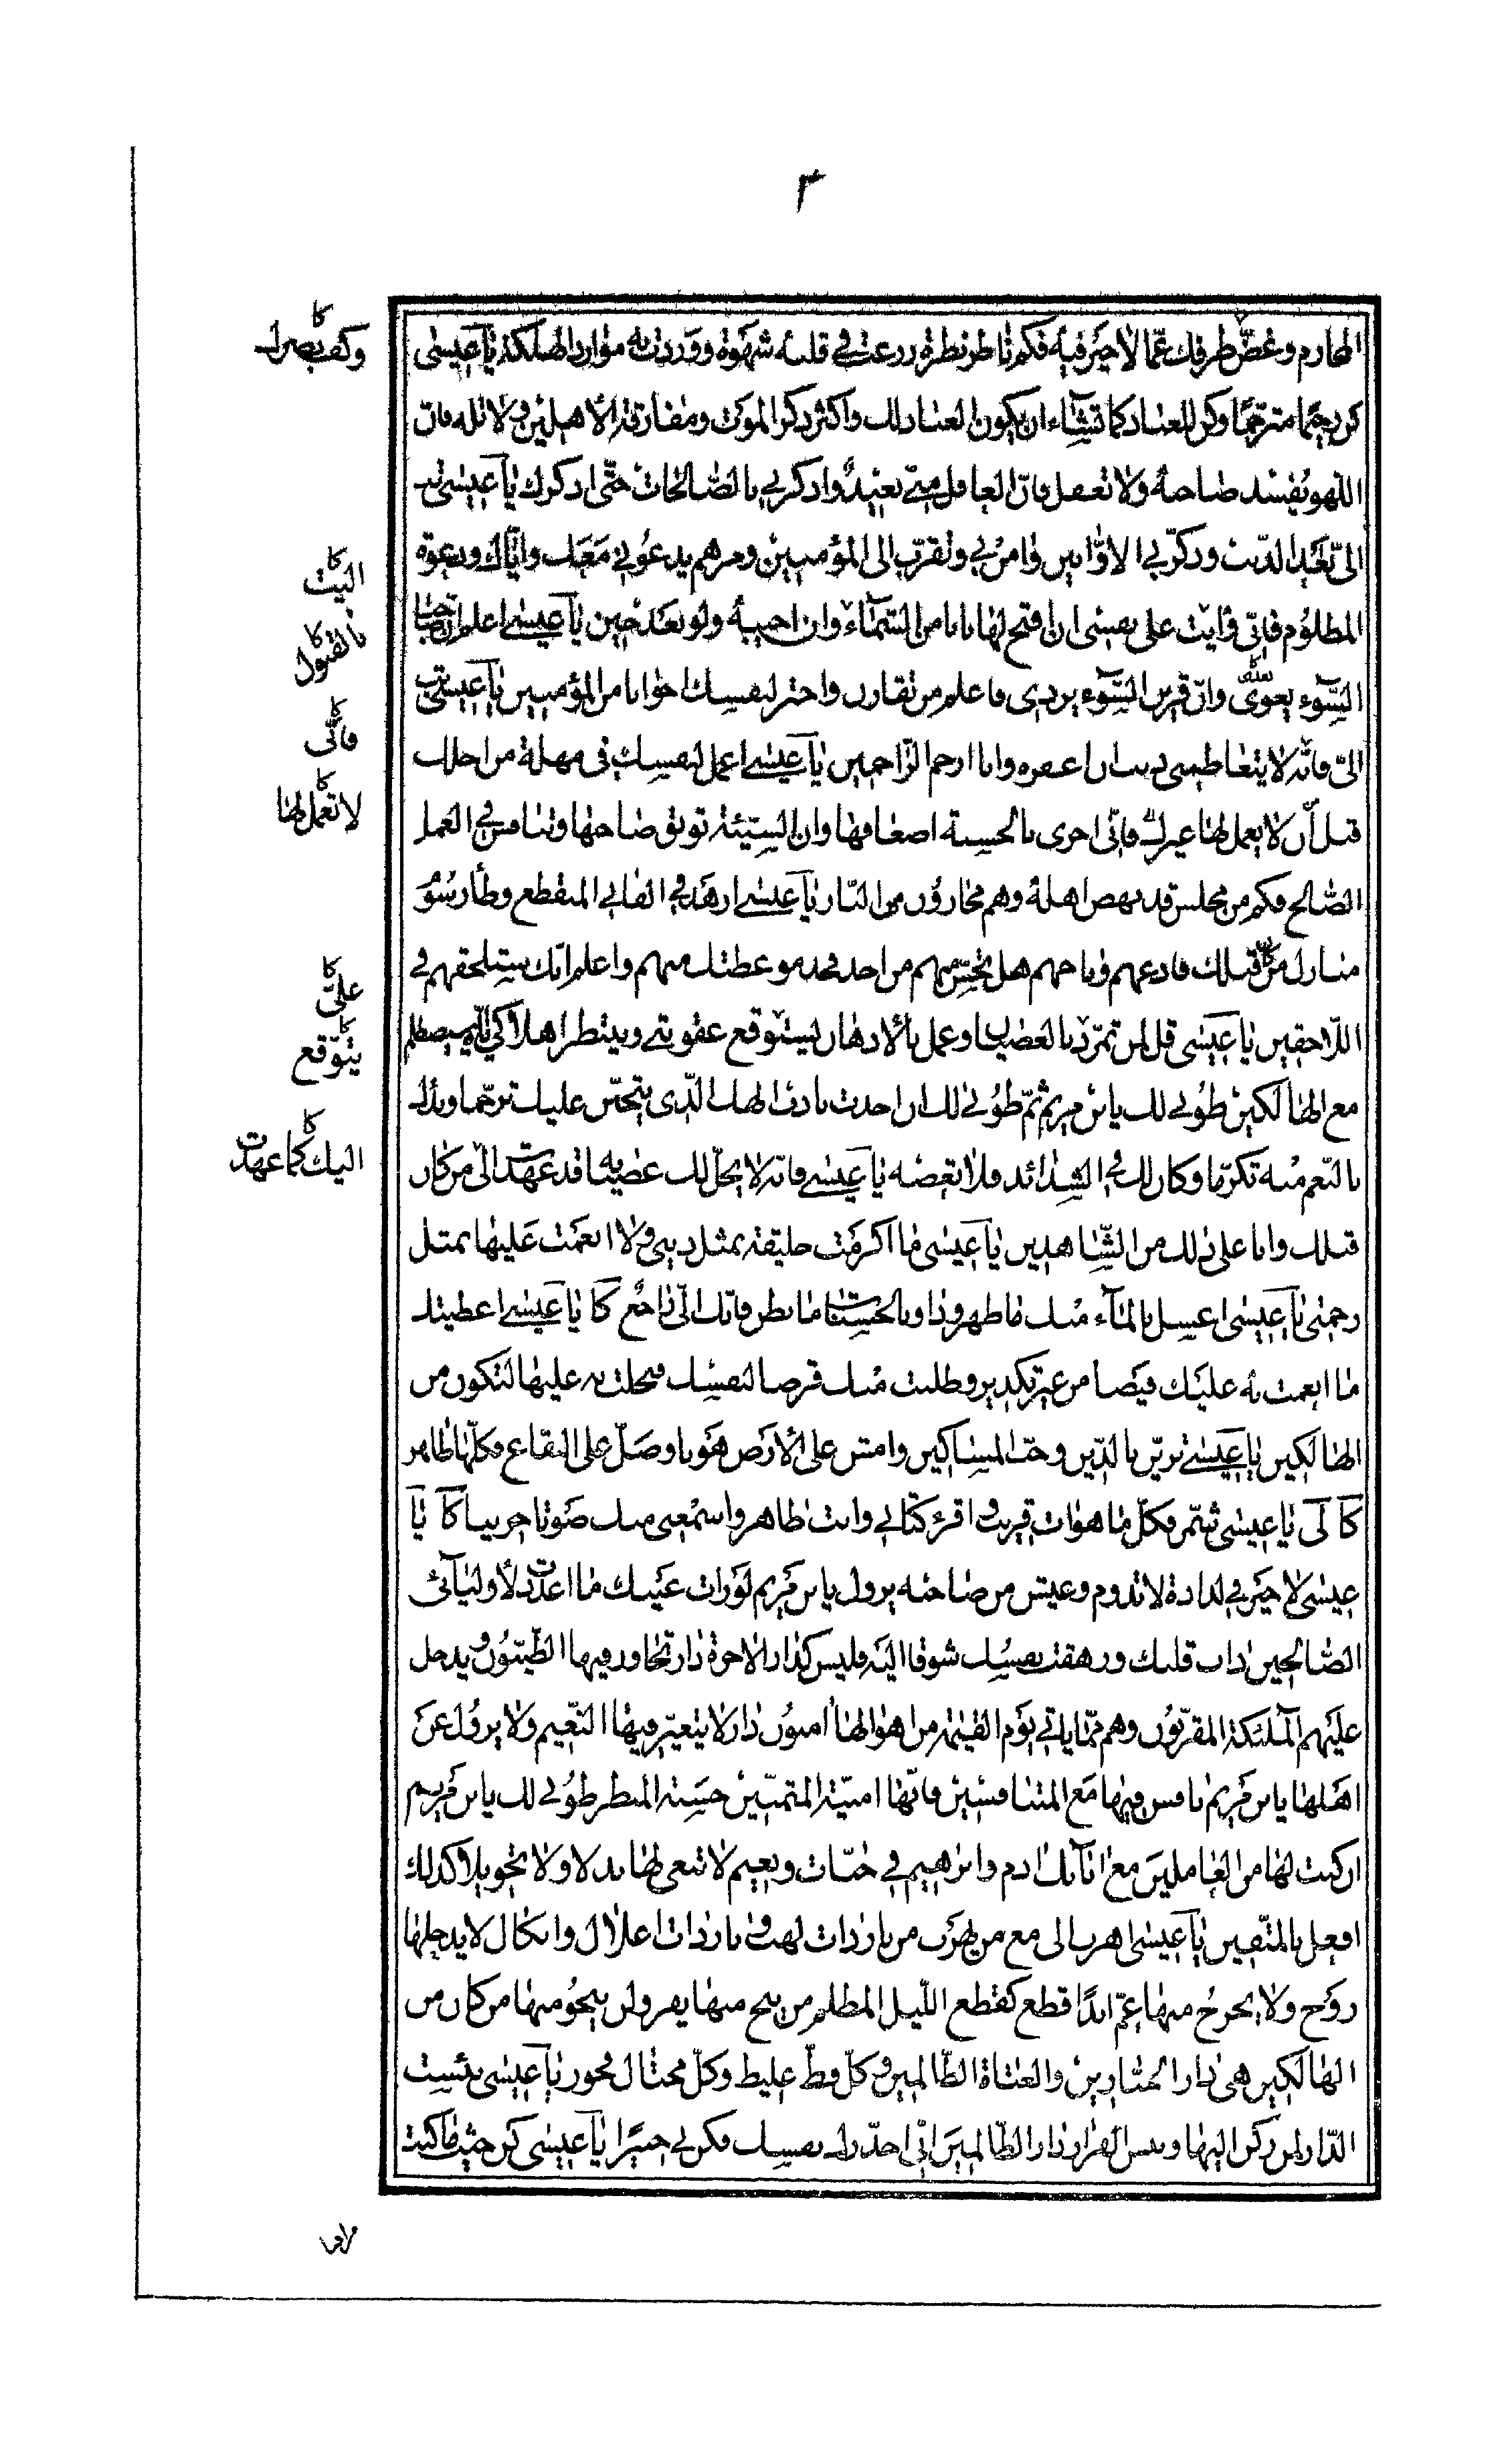 ٣
المحارم وغضّ طرفك عمّا لا خير فيه فكم ناظر نظرة زرعت في قلبه شهوة ووردت به موارد الهلكة يا عيسى
كن رحيما مترحّما وكن للعباد كما تشاء ان يكون العباد لك واكثر ذكر الموت ومفارقة الأهلين ولا تله فانّ
اللهو يفسد صاحبه ولا تغفل فانّ الغافل منّي بعيد واذكرني بالصّالحات حتّى اذكرك يا عيسى تب
الىّ بعد الذنب وذكّر بي الاوّابين وامن بي وتقرّب الى المؤمنين ومرهم يدعوني معك وايّاك ودعوة
المظلوم فانّي وأيت على نفسى ان افتح لها بابا من السّماء وان اجيبه ولو بعد حين يا عيسى اعلم ان صاحب
السّوء يغوى وانّ قرين السّوء يردي فاعلم من تقارن واختر لنفسك اخوانا من المؤمنين يا عيسى تب
الىّ فانّه لا يتعاظمنى ذنب ان اغفره وانا ارحم الرّاحمين يا عيسى اعمل لنفسك في مهلة من اجلك
قبل أن لا يعمل لها غيرك فانّى اجزى بالحسنة اضعافها وان السّيّئة توبق صاحبها وتنافس في العمل
الصّالح فكم من مجلس قد نهض اهله وهم مجارون من النّار يا عيسى ازهد في الفاني المنقطع وطأ رسوم
منازل من كان قبلك فادعهم وناجهم هل تحسّ منهم من احد فخذ موعظتك منهم واعلم انّك ستلحقهم في
اللّاحقين يا عيسى قل لمن تمرّد بالعصيان وعمل بالأدهان ليستوقع عقوبتي وينتظر اهلاكي ايّاه سيصطلم
مع الهالكين طوبى لك يا بن مريم ثمّ طوبى لك ان اخذت بادب الهك الّذى يتحنّن عليك ترحّما وبدأك
بالنّعم منه تكرّما وكان لك في الشدائد فلا تعصه يا عيسى فانّه لا يحلّ لك عصيانه قد عهدت الىّ من كان
قبلك وانا على ذلك من الشّاهدين يا عيسى ما اكرمت خليقة بمثل ديني ولا انعمت عليها بمثل
رحمتى يا عيسى اغسل بالماء منك ما ظهر وداو بالحسنات ما بطن فانّك الىّ راجع كا يا عيسى اعطيتك
ما انعمت به عليك فيضا من غير تكدير وطلبت منك قرضا لنفسك فبخلت به عليها لتكون من
الهالكين يا عيسى تزيّن بالدّين وحبّ المساكين وامش على الأرض هونا وصلّ على البقاع فكلّها طاهر
كا لى يا عيسى شمّر فكلّ ما هو ات قريب واقرء كتابي وانت طاهر واسمعنى منك صوتا حزينا كا يا
عيسى لا خير في لذاذة لا تدوم وعيش من صاحبه يزول يا بن مريم لو رات عينك ما اعددت لأوليائي
الصّالحين ذاب قلبك وزهقت نفسك شوقا اليه فليس كدار الاخرة دار تجاور فيها الطّيّبون ويدخل
عليهم الملئكة المقرّبون وهم ممّا ياتي يوم القيمة من اهوالها امنون دار لا يتغيّر فيها النّعيم ولا يزول عن
اهلها يا بن مريم نافس فيها مع المتنافسين فانّها امنيّة المتمنّين حسنة المنظر طوبى لك يا بن مريم
ان كنت لها من العاملين مع ابائك ادم وابرهيم في جنّات ونعيم لا تبغى لها بدلا ولا تحويلا كذلك
افعل بالمتّقين يا عيسى اهرب الى مع من يهرب من نار ذات لهب ونار ذات اغلال وانكال لا يدخلها
روح ولا يخرج منها غمّ ابدًا قطع كقطع اللّيل المظلم من ينج منها يفز ولن ينجو منها من كان من
الهالكين هي دار الجبّارين والعتاة الظّالمين وكلّ فظّ غليظ وكلّ مختال فخور يا عيسى بئست
الدّار لمن ركن اليها وبئس القرار دار الظّالمين انّي احذّرك نفسك فكن بي خبيرًا يا عيسى كن حيث ما كنت
كا
وكف بصرك
كا
اليت
كا
بالقبول
كا
فانّى
كا
لا تعمل لها
كا
علىّ
كا
يتوقّع
كا
اليك كما عهدت
مراقبا